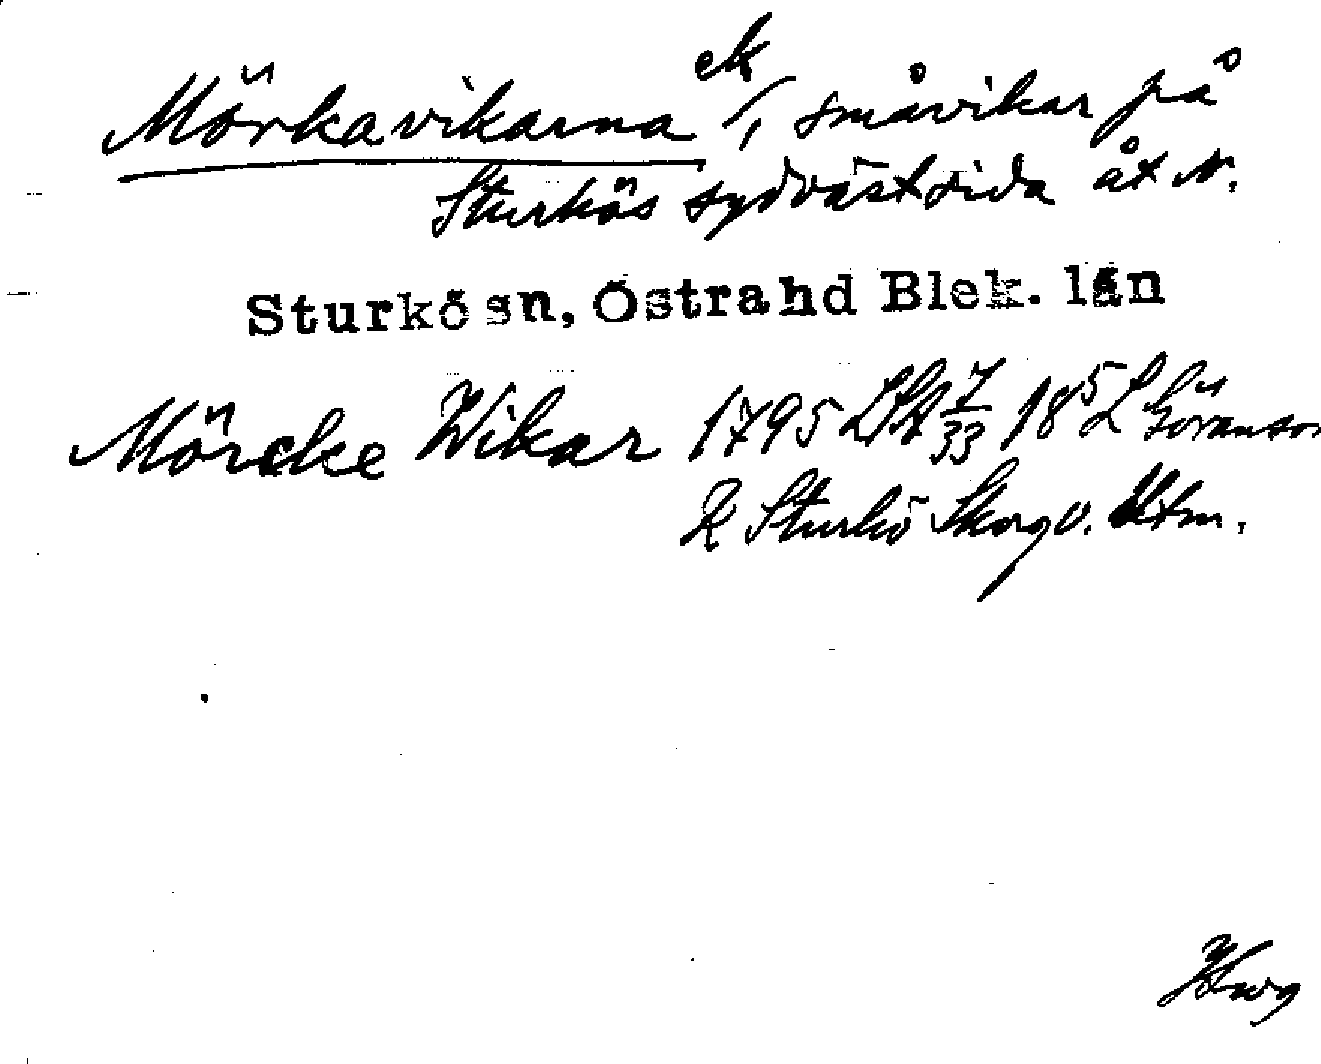 Mörkavikarna ek /, småvikar på
Sturkös sydvästsida åt N.
Sturkö sn, Östrahd Blek. län
Mörcke Wikar 1795 LSA 7/33 18 5 L Göranson
R Sturkö Skog o. Utm.